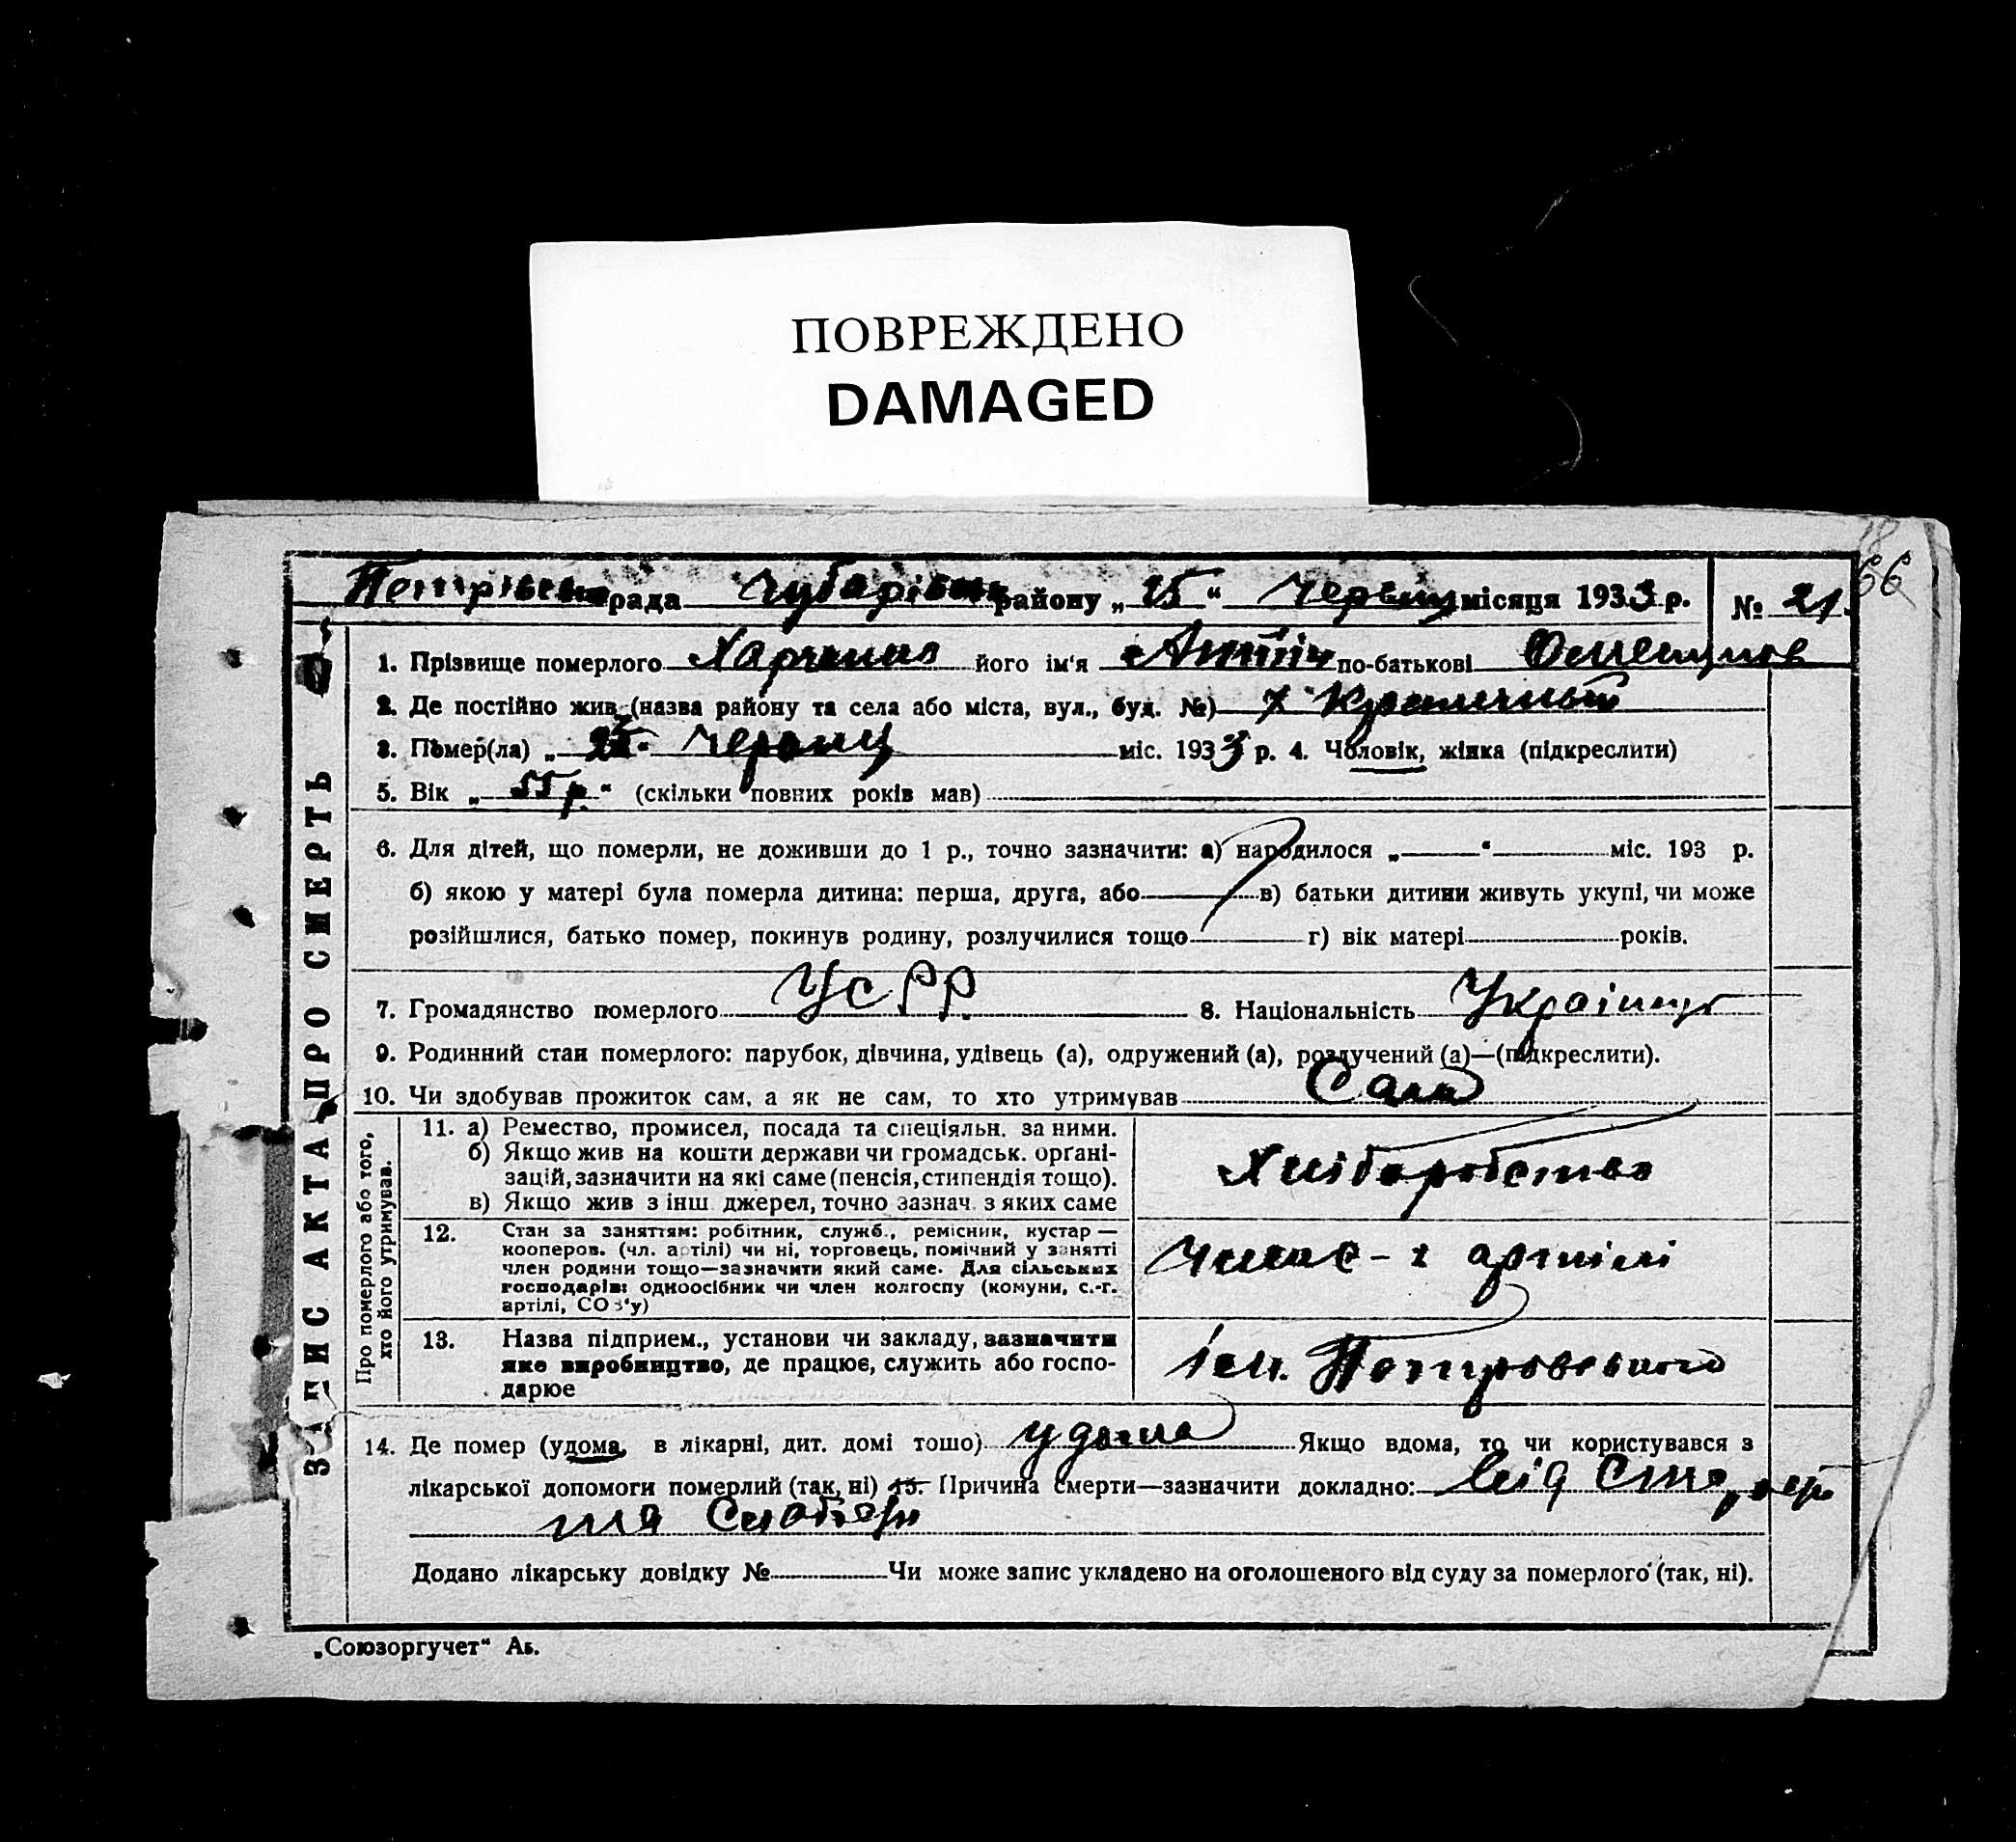 ПОВРЕЖДЕНО
DAMAGED
66
рада Чубарівськ району „25“ Червця місяця 1933 р. № 21
1. Прізвище померлого його ім'я по-батькові
2. Де постійно жив (назва району та села або міста, вул., буд. №)
3. Помер(ла) „25 Червця міс. 1933 р. 4. Чоловік, жінка (підкреслити)
5. Вік „55 р.“ (скільки повних років мав)
6. Для дітей, що померли, не доживши до 1 р., точно зазначити: а) народилося „ “ міс. 193 р.
б) якою у матері була померла дитина: перша, друга, або в) батьки дитини живуть укупі, чи може
розійшлися, батько помер, покинув родину, розлучилися тощо г) вік матері років.
7. Громадянство померлого УСРР 8. Національність Українец
9. Родинний стан померлого: парубок, дівчина, удівець (а), одружений (а), розлучений (а)—(підкреслити).
10. Чи здобував прожиток сам, а як не сам, то хто утримував Сам
ЗАПИС АКТА ПРО СМЕРТЬ
Про померлого або того,
хто його утримував.
11. а) Ремество, промисел, посада та спеціяльн. за ними.
б) Якщо жив на кошти держави чи громадськ. органі-
зацій, зазначити на які саме (пенсія, стипендія тощо).
в) Якщо жив з інш джерел, точно зазнач. з яких саме
Хліборобство
12. Стан за заняттям: робітник, служб., ремісник, кустар —
кооперов. (чл. артілі) чи ні, торговець, помічний у занятті
член родини тощо—зазначити який саме. Для сільських
господарів: одноосібник чи член колгоспу (комуни, с.-г.
артілі, СОЗ'у)
артілі
13. Назва підприєм., установи чи закладу, зазначити
яке виробництво, де працює, служить або госпо-
дарює
ім. Петровського
14. Де помер (удома, в лікарні, дит. домі тощо) удома Якщо вдома, то чи користувався з
лікарської допомоги померлий (так, ні) 15. Причина смерти—зазначити докладно: від
та
Додано лікарську довідку № Чи може запис укладено на оголошеного від суду за померлого (так, ні).
„Союзоргучет“ Аь.